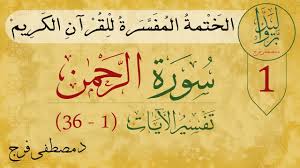 الخَتْمَةُ المُفَسَّرَةُ لِلْقُرْآنِ الكَرِيمِ
سُورَةُ الرَّحْمٰنِ
تَفْسِيرُ الآيَاتِ (1 - 36)
د مصطفى فرج
1